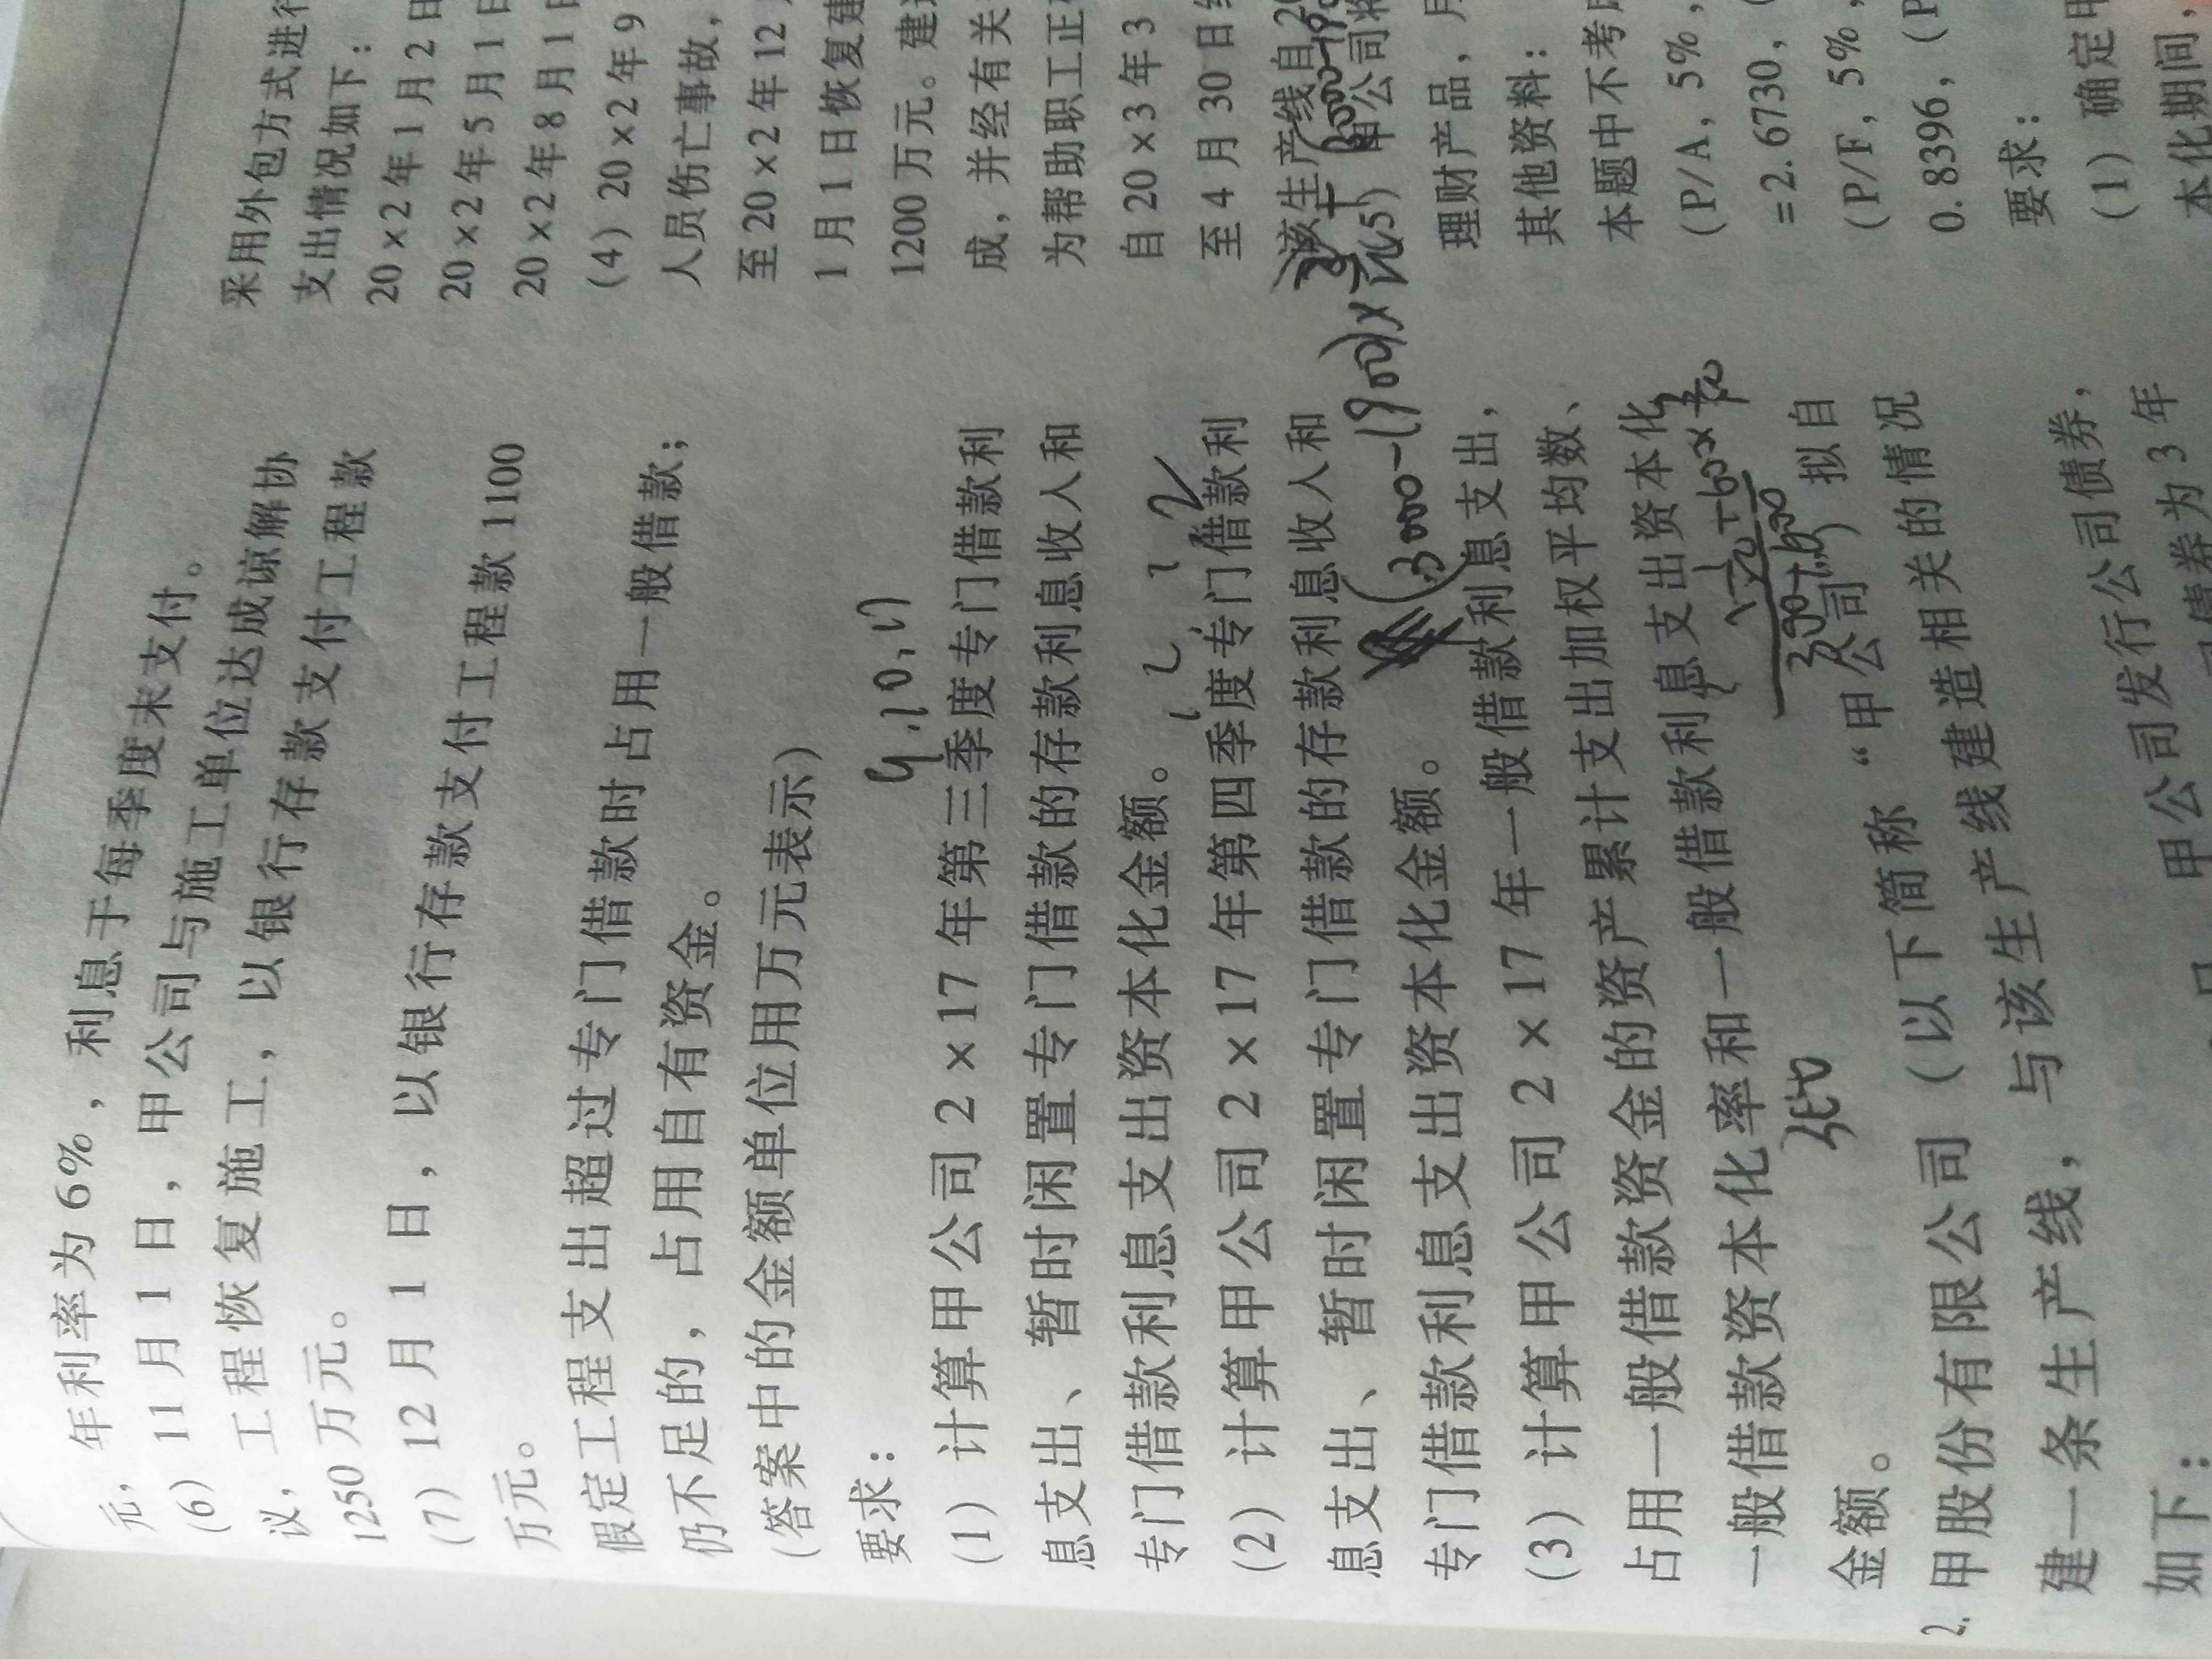 元，年利率为6%，利息于每季度末支付。
(6) 11月1日，甲公司与施工单位达成谅解协
议，工程恢复施工，以银行存款支付工程款
1250万元。
(7) 12月1日，以银行存款支付工程款1100
万元。
假定工程支出超过专门借款时占用一般借款；
仍不足的，占用自有资金。
(答案中的金额单位用万元表示)
要求：
(1) 计算甲公司2×17年第三季度专门借款利
息支出、暂时闲置专门借款的存款利息收入和
专门借款利息支出资本化金额。
(2) 计算甲公司2×17年第四季度专门借款利
息支出、暂时闲置专门借款的存款利息收入和
专门借款利息支出资本化金额。
(3) 计算甲公司2×17年一般借款利息支出，
占用一般借款资金的资产累计支出加权平均数、
一般借款资本化率和一般借款利息支出资本化
金额。
2. 甲股份有限公司（以下简称“甲公司”）拟自
建一条生产线，与该生产线建造相关的情况
如下：
甲公司发行公司债券，
债券为3年
采用外包方式进行
支出情况如下：
20×2年1月2日
20×2年5月1日
20×2年8月1日
(4) 20×2年9
人员伤亡事故，
至20×2年12
1月1日恢复建
1200万元。建
成，并经有关
为帮助职工正
自20×3年3
至4月30日
该生产线自20
甲公司将
理财产品，月
其他资料：
本题中不考
(P/A, 5%,
=2.6730,
(P/F, 5%,
0.8396, (P
要求：
(1) 确定甲
本化期间，